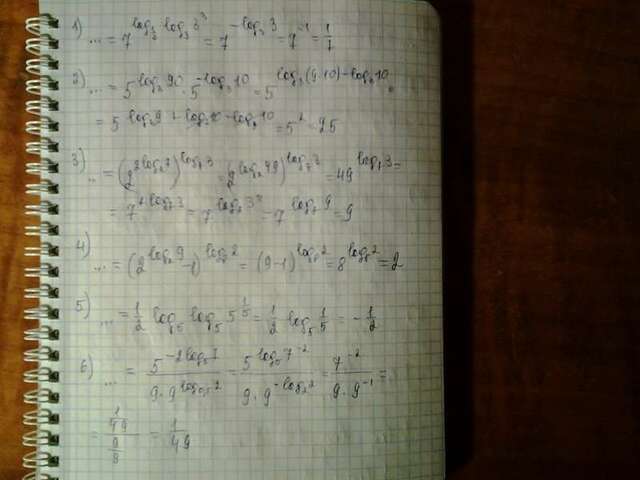 1) ... = 7^{log_{1/3} log_3 3^3} = 7^{-log_3 3} = 7^{-1} = 1/7
2) ... = 5^{log_3 90} · 5^{-log_3 10} = 5^{log_3(9·10) - log_3 10} =
= 5^{log_3 9 + log_3 10 - log_3 10} = 5^2 = 25
3) ... = (2^{2log_2 7})^{log_7 3} = (2^{log_2 49})^{log_7 3} = 49^{log_7 3} =
= 7^{2log_7 3} = 7^{log_7 3^2} = 7^{log_7 9} = 9
4) ... = (2^{log_2 9} - 1)^{log_8 2} = (9-1)^{log_8 2} = 8^{log_8 2} = 2
5) ... = 1/2 log_5 log_5 5^{1/5} = 1/2 log_5 1/5 = -1/2
6) ... = 5^{-2log_5 7} / 9·9^{log_{0,5} 2} = 5^{log_5 7^{-2}} / 9·9^{-log_2 2} = 7^{-2} / 9·9^{-1} =
= 1/49 / 9/9 = 1/49